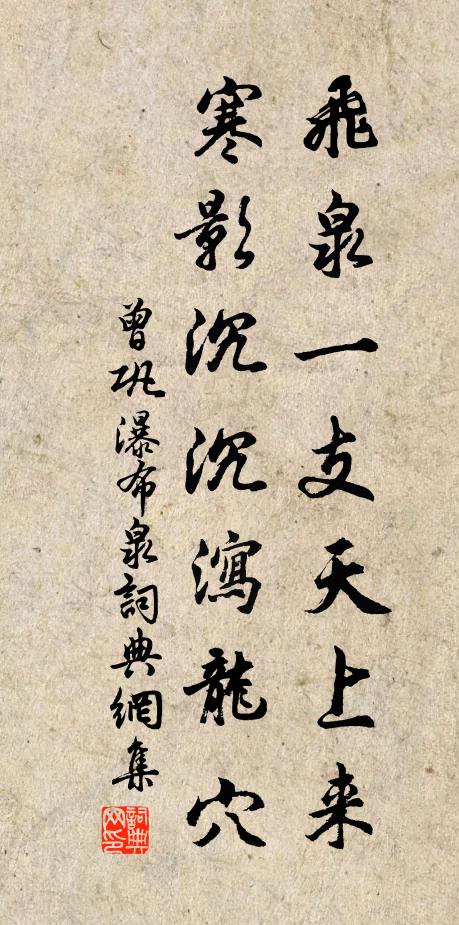 飛泉一支天上来
寒影沉沉瀉龍穴
曾巩瀑布泉詞典網集
詞典网印